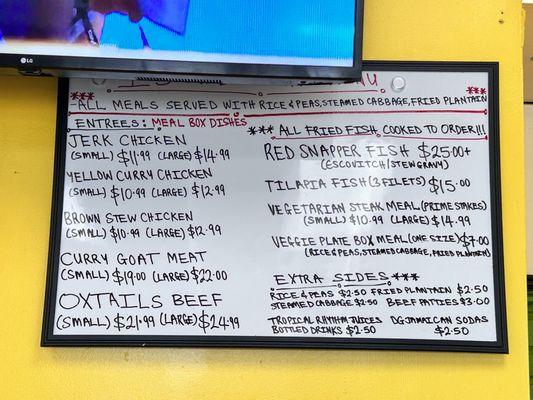 LG
MENU
*** ALL MEALS SERVED WITH RICE & PEAS, STEAMED CABBAGE, FRIED PLANTAIN ***
ENTREES: MEAL BOX DISHES
JERK CHICKEN
(SMALL) $11.99 (LARGE) $14.99
YELLOW CURRY CHICKEN
(SMALL) $10.99 (LARGE) $12.99
BROWN STEW CHICKEN
(SMALL) $10.99 (LARGE) $12.99
CURRY GOAT MEAT
(SMALL) $19.00 (LARGE) $22.00
OXTAILS BEEF
(SMALL) $21.99 (LARGE) $24.99
*** ALL FRIED FISH COOKED TO ORDER!!!
RED SNAPPER FISH $25.00+
(ESCOVITCH/STEW GRAVY)
TILAPIA FISH (3 FILETS) $15.00
VEGETARIAN STEAK MEAL (PRIME STAKES)
(SMALL) $10.99 (LARGE) $14.99
VEGGIE PLATE BOX MEAL (ONE SIZE) $7.00
(RICE & PEAS, STEAMED CABBAGE, FRIED PLANTAIN)
EXTRA SIDES ***
RICE & PEAS $2.50 FRIED PLANTAIN $2.50
STEAMED CABBAGE $2.50 BEEF PATTIES $3.00
TROPICAL RHYTHM JUICES DG JAMAICAN SODAS
BOTTLED DRINKS $2.50 $2.50